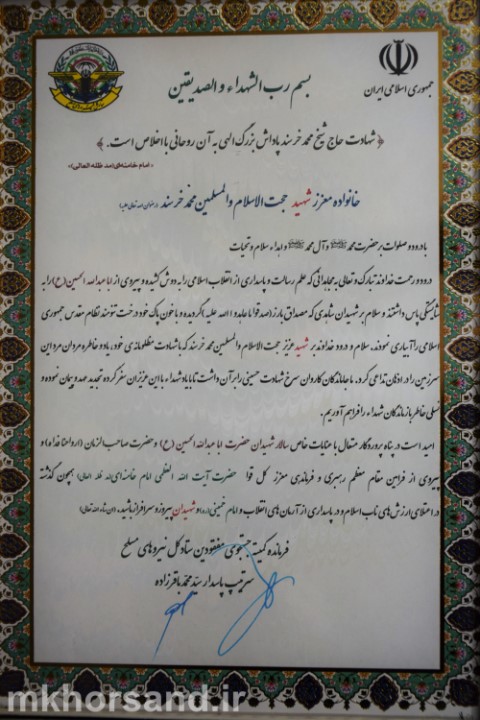 جمهوری اسلامی ایران
بسم رب الشهداء و الصدیقین
﴿ شهادت حاج شیخ محمد خرسند پاداش بزرگ الهی به آن روحانی با اخلاص است. ﴾
«امام خامنه‌ای(مد ظله العالی)»
خانواده معزز شهید حجت الاسلام والمسلمین محمد خرسند
با درود و صلوات بر حضرت محمد ﷺ و آل محمد ﷺ و اهداء سلام و تحیات
درود و رحمت خداوند تبارک و تعالی به مجاهدانی که علم رسالت و پاسداری از انقلاب اسلامی را به دوش کشیده و پیروی از ابا عبدالله الحسین(ع) را به
شایستگی پاس داشتند و سلام بر شهیدان شاهدی که مصداق بارز (صدقوا ما عاهدوا الله علیه) گردیده و با خون پاک خود درخت تنومند نظام مقدس جمهوری
اسلامی را آبیاری نمودند. سلام و درود خداوند بر شهید عزیز حجت الاسلام والمسلمین محمد خرسند که با شهادت مظلومانه‌ی خود، یاد و خاطره مردان مرد این
سرزمین را در اذهان تداعی کرد. ما جاماندگان کاروان سرخ شهادت حسینی را بر آن داشت تا با یاد شهداء با این عزیزان سفر کرده تجدید عهد و پیمان نموده و
تسلی خاطر بازماندگان شهداء را فراهم آوریم.
امید است در پناه پروردگار متعال با عنایات خاص سالار شهیدان حضرت ابا عبدالله الحسین (ع) و حضرت صاحب الزمان (ارواحنا فداه) و
پیروی از فرامین مقام معظم رهبری و فرماندهی معزز کل قوا حضرت آیت الله العظمی امام خامنه‌ای(مد ظله العالی) همچون گذشته
در اعتلای ارزش‌های ناب اسلام و در پاسداری از آرمان‌های انقلاب و امام خمینی(ره) و شهیدان پیروز و سرافراز باشید.(ان شاء الله تعالی)
فرمانده کمیته جستجوی مفقودین ستاد کل نیروهای مسلح
سرتیپ پاسدار سید محمد باقرزاده
mkhorsand.ir